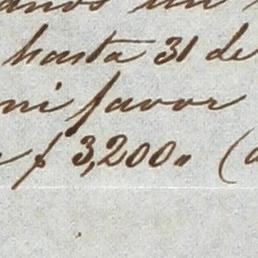 hasta 31 de
mi favor
$ 3,200„ (